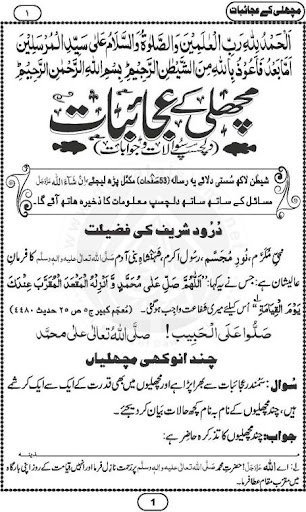 مچھلی کے عجائبات
۱
اَلْحَمْدُ لِلّٰہِ رَبِّ الْعٰلَمِیْنَ وَالصَّلٰوۃُ وَالسَّلَامُ عَلٰی سَیِّدِ الْمُرْسَلِیْنَ
اَمَّا بَعْدُ فَاَعُوْذُ بِاللّٰہِ مِنَ الشَّیْطٰنِ الرَّجِیْمِ بِسْمِ اللّٰہِ الرَّحْمٰنِ الرَّحِیْمِ
مچھلی کے عجائبات
(دلچسپ سوالات و جوابات)
شیطٰن لاکھ سستی دلائے یہ رسالہ (53صفحات) مکمّل پڑھ لیجئے اِنْ شَآءَ اللہ عَزَّوَجَلَّ
مسائل کے ساتھ ساتھ دلچسپ معلومات کا ذخیرہ ہاتھ آئے گا۔
دُرُود شریف کی فضیلت
نبیِّ مُکَرَّم، نورِ مُجَسَّم، رسولِ اکرم، شَہَنشاہِ بنی آدم صلَّی اللہ تعالٰی علیہ واٰلہٖ وسلَّم کا فرمانِ
عالیشان ہے: جس نے یہ کہا: ”اَللّٰھُمَّ صَلِّ عَلٰی مُحَمَّدٍ وَّ اَنْزِلْہُ الْمَقْعَدَ الْمُقَرَّبَ عِنْدَکَ
یَوْمَ الْقِیَامَۃِ“ اُس کیلئے میری شَفاعت واجب ہو گئی۔ (مُعْجَم کبیر ج ۵ ص ۲۵ حدیث ۴۴۸۰)
صَلُّوْا عَلَی الْحَبِیْب! صلَّی اللہُ تعالٰی علٰی محمَّد
چند انوکھی مچھلیاں
سُوال: سَمُندر عجائبات سے بھرا پڑا ہے اور مچھلیوں میں بھی قدرت کے ایک سے ایک کرشمے
ہیں، چند مچھلیوں کے نام بہ نام کچھ حالات بیان کر دیجئے۔
جواب: چند مچھلیوں کا تذکِرہ حاضِر ہے:
مــدیـنـہ
۱؎ اے اللہ عَزَّوَجَلَّ! حضرت محمد صلَّی اللہ تعالٰی علیہ واٰلہٖ وسلَّم پر رَحمت نازل فرما اور انہیں قیامت کے روز اپنی بارگاہ
میں مقرّب مقام عطا فرما۔
1